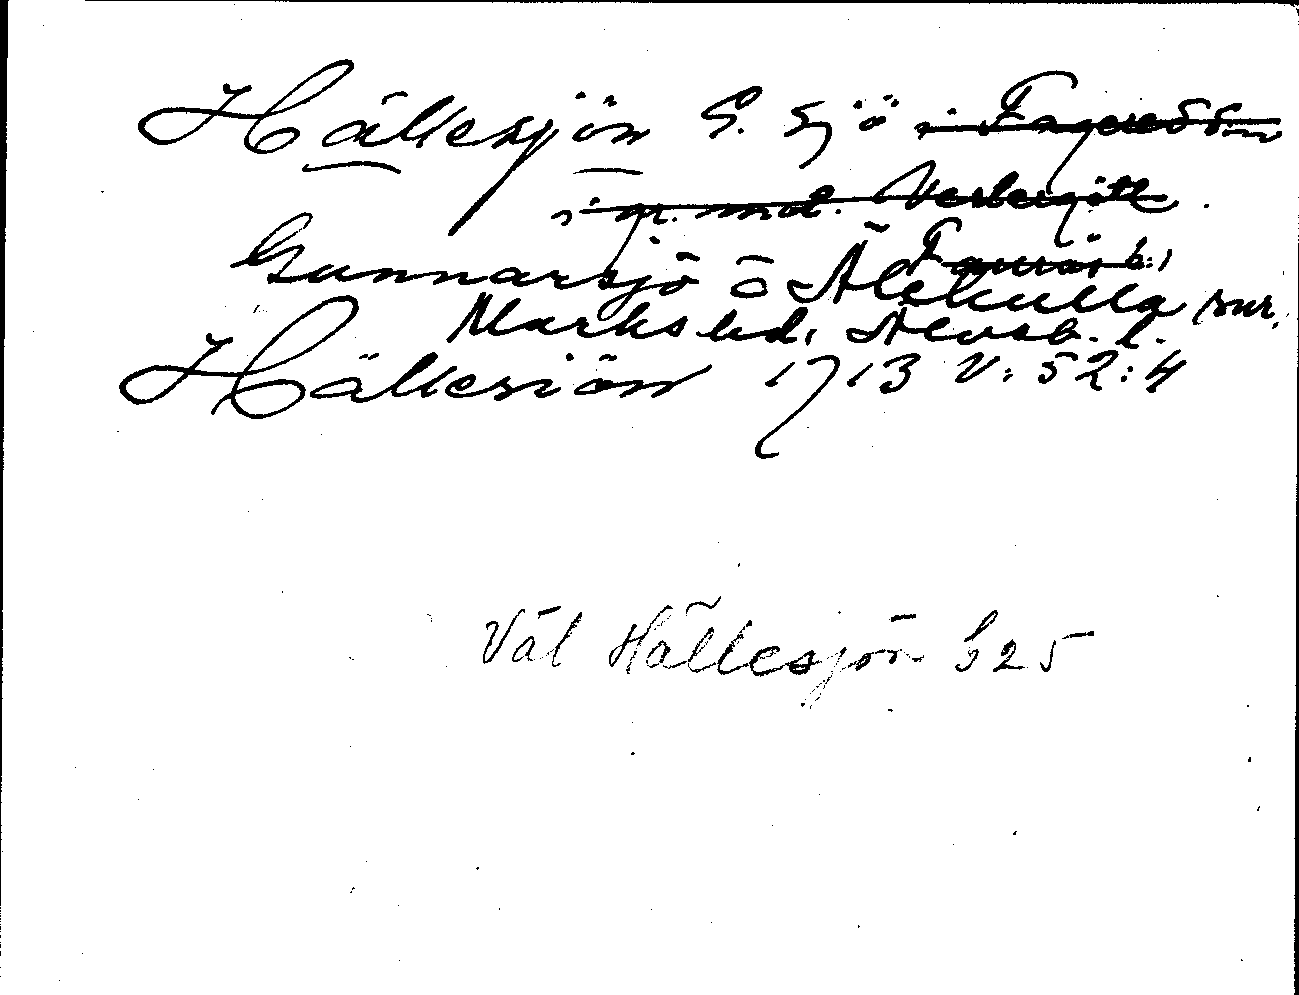 Hällesjön S. sjö i Fagered sn
i gr. mot Västergötl.
Gunnarsjö o Älekulla snr,
Marks hd, Älvsb. l.
Hällesiön 1713 V: 52:4
Väl Hällesjön G25